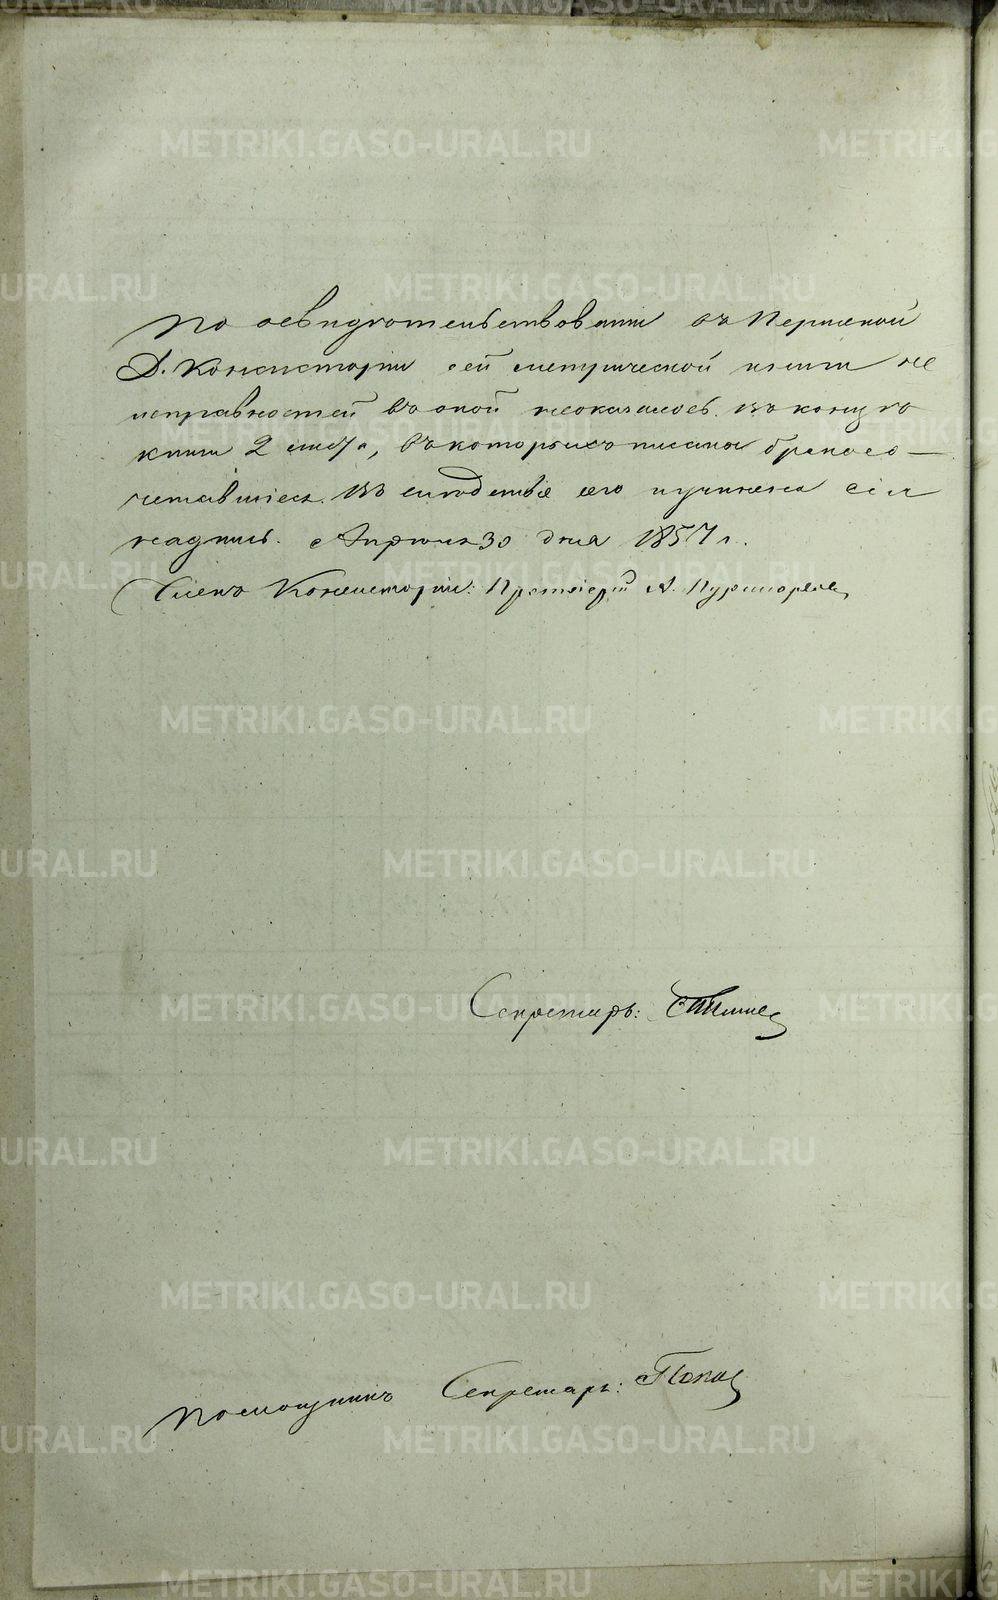 По освидѣтельствованіи въ Пермской
Д. Консисторіи сей метрической книги не
исправностей въ оной неоказалось. Въ концѣ
книги 2 листа, въ которыхъ писаны бракосо-
четавшіеся. Въ слѣдствіе чего учинена сія
надпись. Апрѣля 30 дня 1857 г.
Членъ Консисторіи: Протоіерей А.
Секретарь:
Помощникъ Секретаря: Попов
METRIKI.GASO-URAL.RU